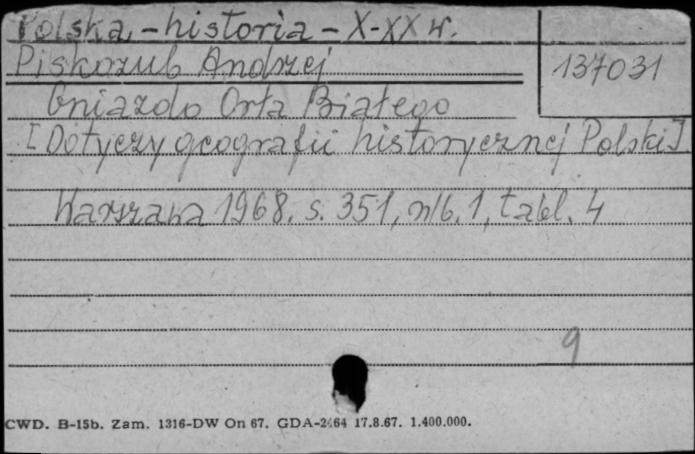 Polska - historia - X-XX w.
Piskozub Andrzej
137031
Gniazdo Orła Białego
[Dotyczy geografii historycznej Polski].
Warszawa 1968. s. 351, nlb. 1, tabl. 4
9
CWD. B-15b. Zam. 1316-DW On 67. GDA-2464 17.8.67. 1.400.000.